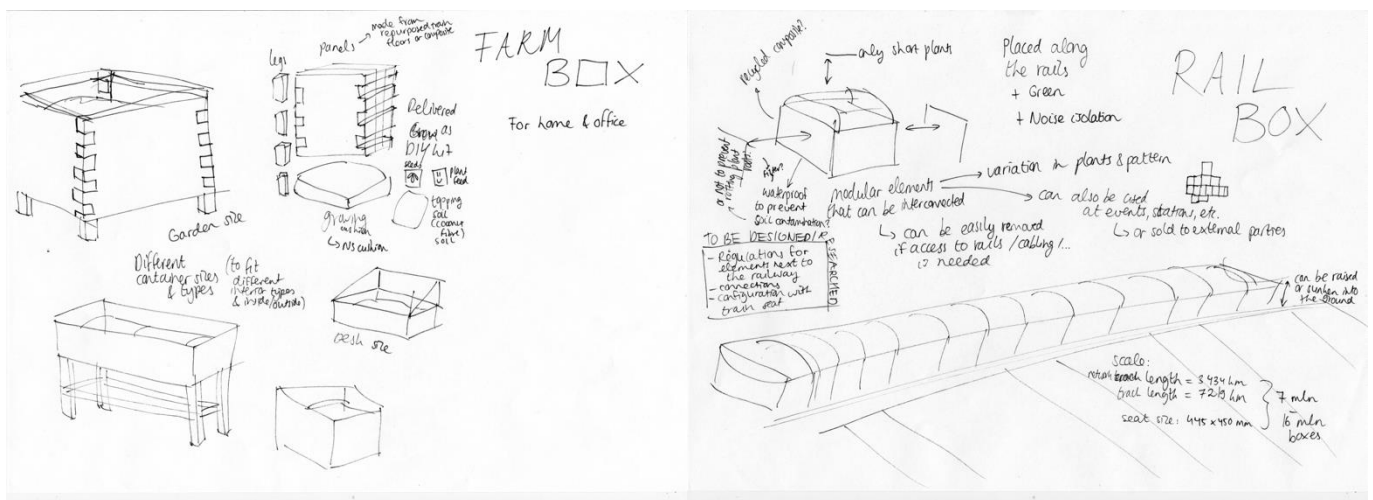 FARM
BOX
For home & office
Panels
made from
repurposed train
floors or composite
legs
Delivered
as
DIY kit
seeds
plant
feed
growing
cushion
↳ NS cushion
topping
soil
(coconut
fibre)
soil
Garden size
Different
container sizes
& types
(to fit
different
interior types
& inside/outside)
Desk size
RAIL
BOX
Placed along
the rails
+ Green
+ Noise isolation
only short plants
recycled composite?
or not to prevent
rotting plant
waterproof
to prevent
soil contamination?
modular elements
that can be interconnected
variation in plants & pattern
can also be used
at events, stations, etc.
↳ or sold to external parties
↳ can be easily removed
if access to rails / cabling / ...
is needed
TO BE DESIGNED/RESEARCHED
- Regulations for
elements next to
the railway
- connections
- configuration with
train seat
can be raised
or sunken into
the ground
scale:
track length = 7219 km
seat size: 445 x 450 mm
7 mln
16 mln
boxes